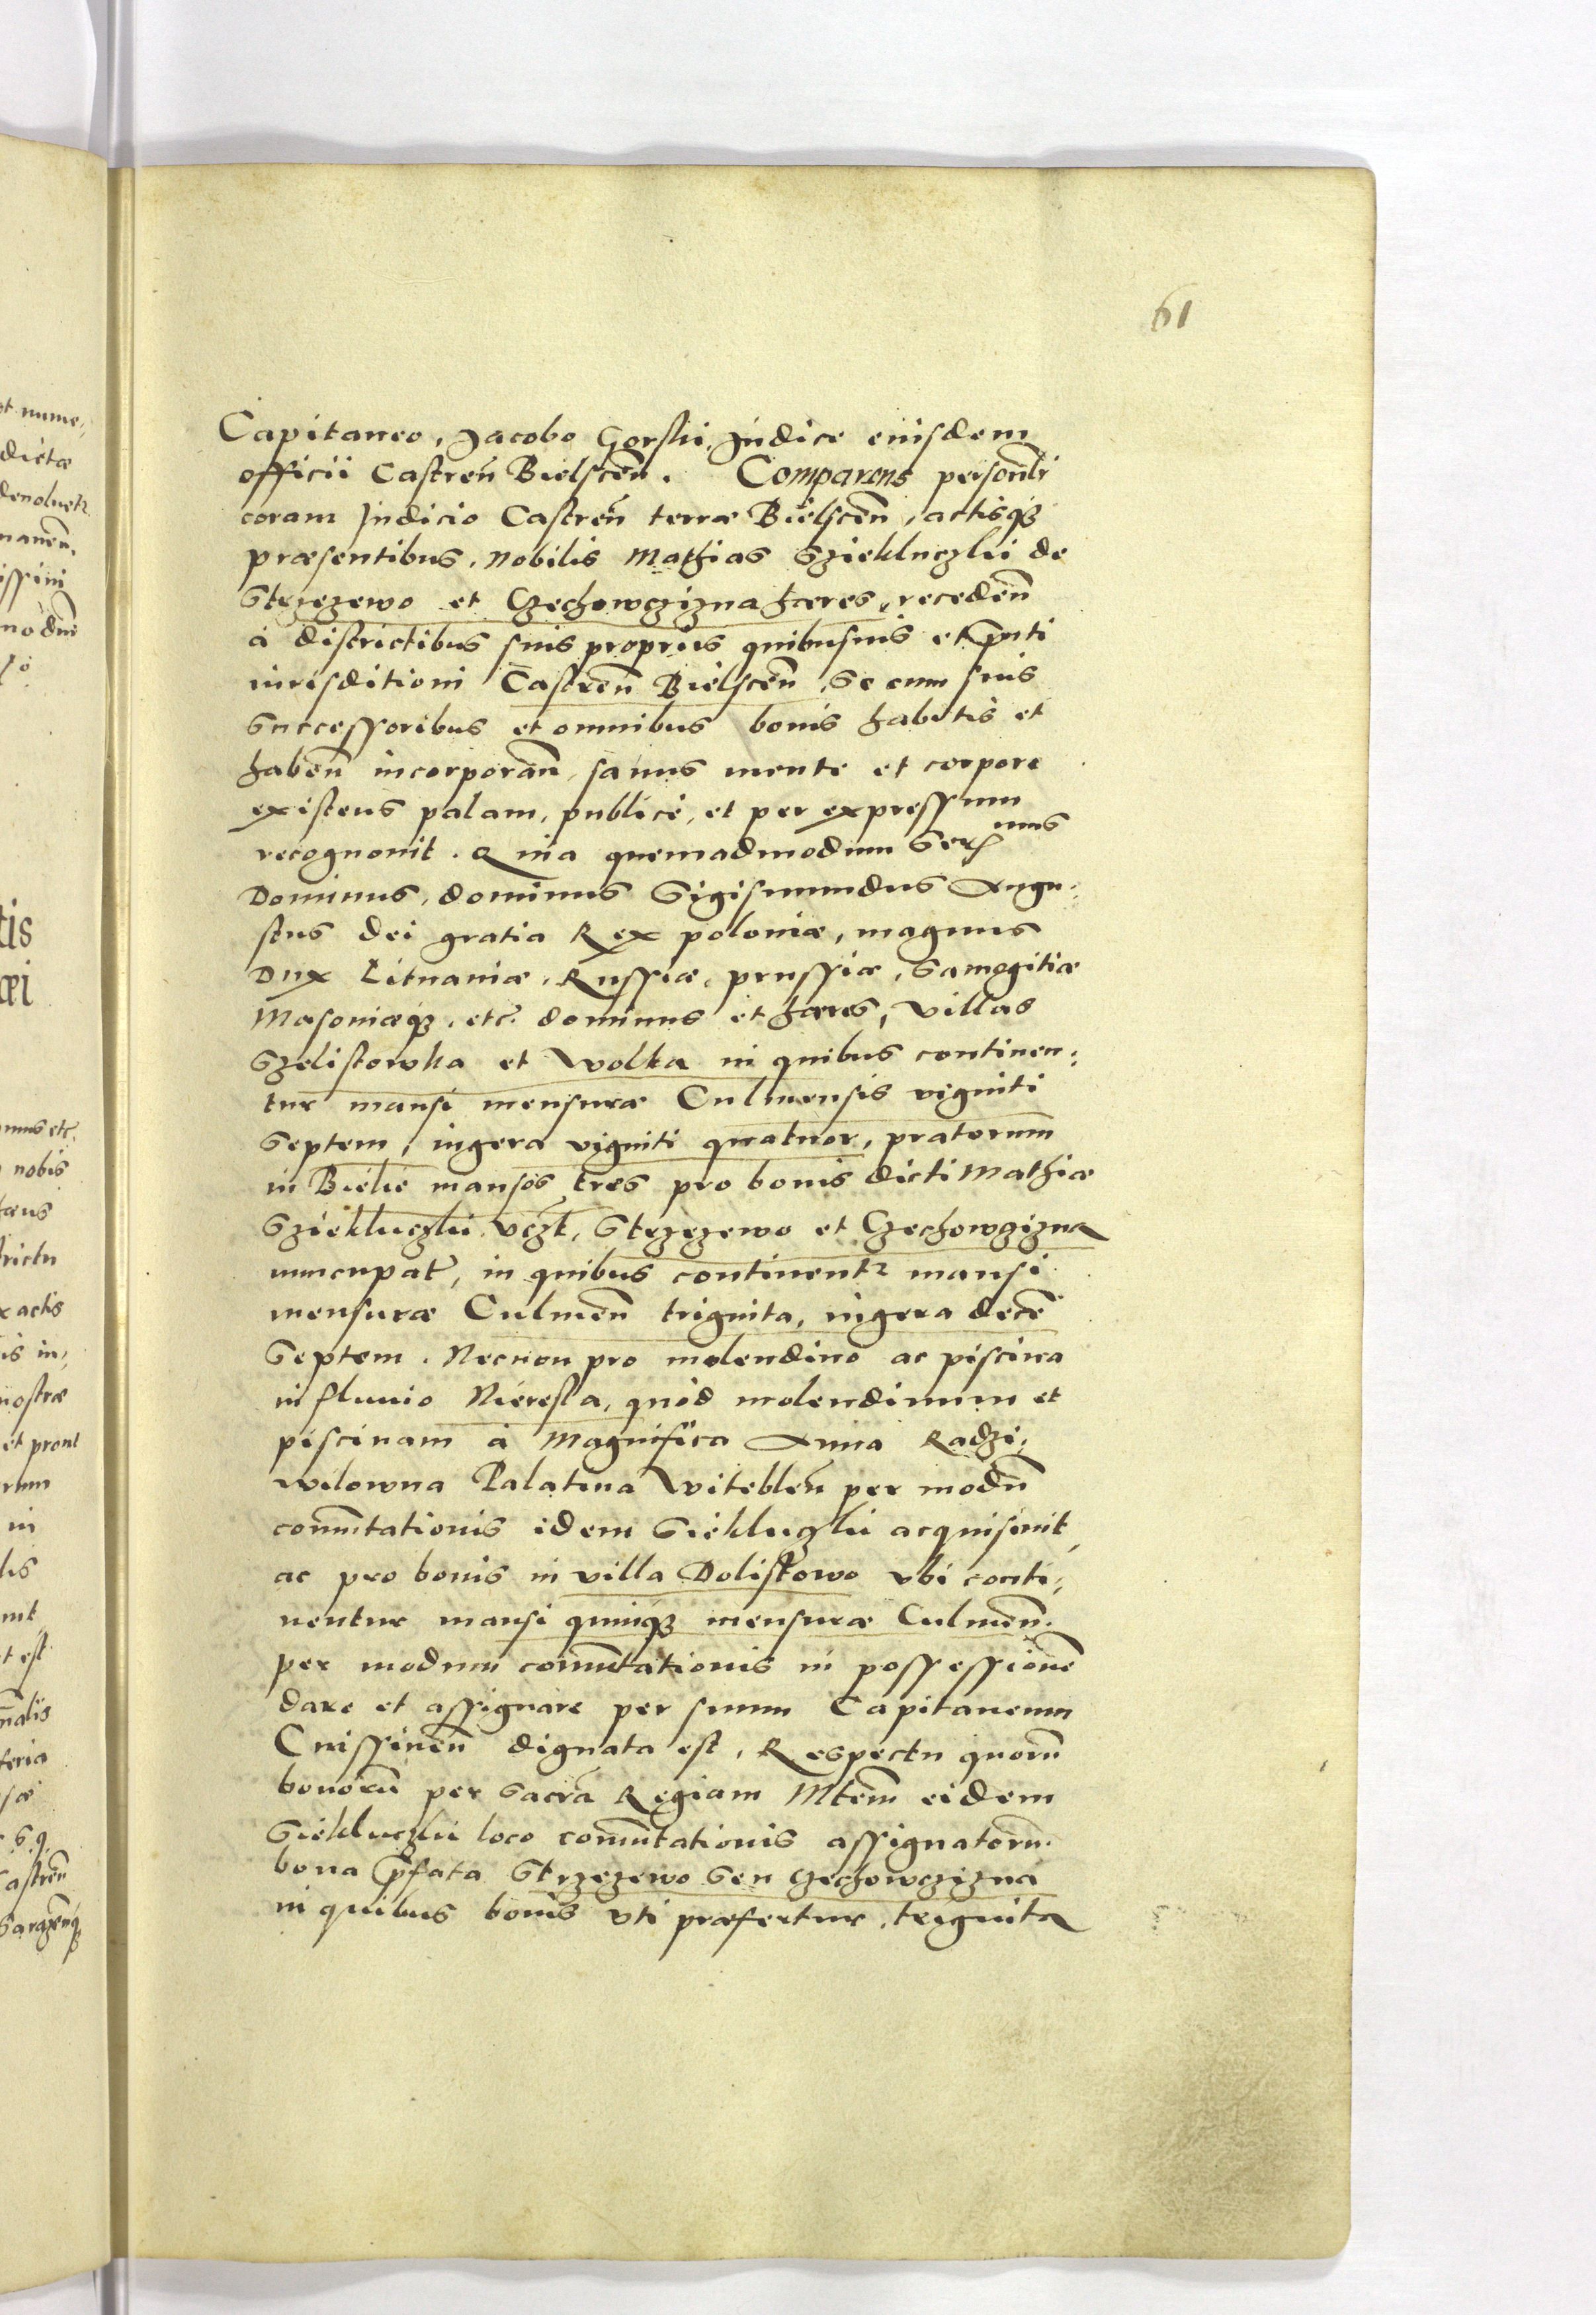 61
Capitaneo, Jacobo Gorski, Judice eiusdem
officii Castreñ Bielsceñ. Comparens personlr
coram Judicio Castreñ terræ Bielsceñ, actisqȝ
præsentibus, Nobilis Mathias Sziekluczki de
Strzezewo et Czechowczizna hæres, recedeñ
à districtibus suis propriis quibusuis et pñti
iurisditioni Castreñ Bielsceñ, se cum suis
Successoribus et omnibus bonis habitis et
habeñ incorporañ, sanus mente et corpore
existens palam, publicè, et per expressum
recognouit. Quia quemadmodum Ser mus
Dominus, dominus Sigismundus Augu:
stus dei gratia Rex poloniæ, magnus
Dux Lituaniæ, Russiæ, prussiæ, Samogitiæ
Masouiæqȝ. etc. dominus et hæres, villas
Szelistowka et Wolka in quibus continen:
tur mansi mensuræ Culmensis viginti
Septem, iugera viginti quatuor, pratorum
in Biele mansos tres pro bonis dicti Mathiæ
Sziekluczki vczt, Strzezewo et Czechowczizna
nuncupat, in quibus continentr mansi
mensuræ Culmeñ triginta, iugera decē
Septem. Necnon pro molendino ac piscina
in fluuio Nieresla, quod molendinum et
piscinam à Magnifica Anna Radzi:
wilowna Palatina Witebleñ per modū
comutationis idem Siekluczki acquisiuit,
ac pro bonis in villa Dolistowo vbi conti:
nentur mansi quinqȝ mensuræ Culmeñ.
per modum comutationis in possessionē
dare et assignare per suum Capitaneum
Cnissineñ dignata est, Respectu quorū
bonorū per sacrā Regiam Mtem eidem
Siekluczki loco comutationis assignatorū.
bona pfata Strzezewo seu Czechowczizna
in quibus bonis vti præfertur, triginta